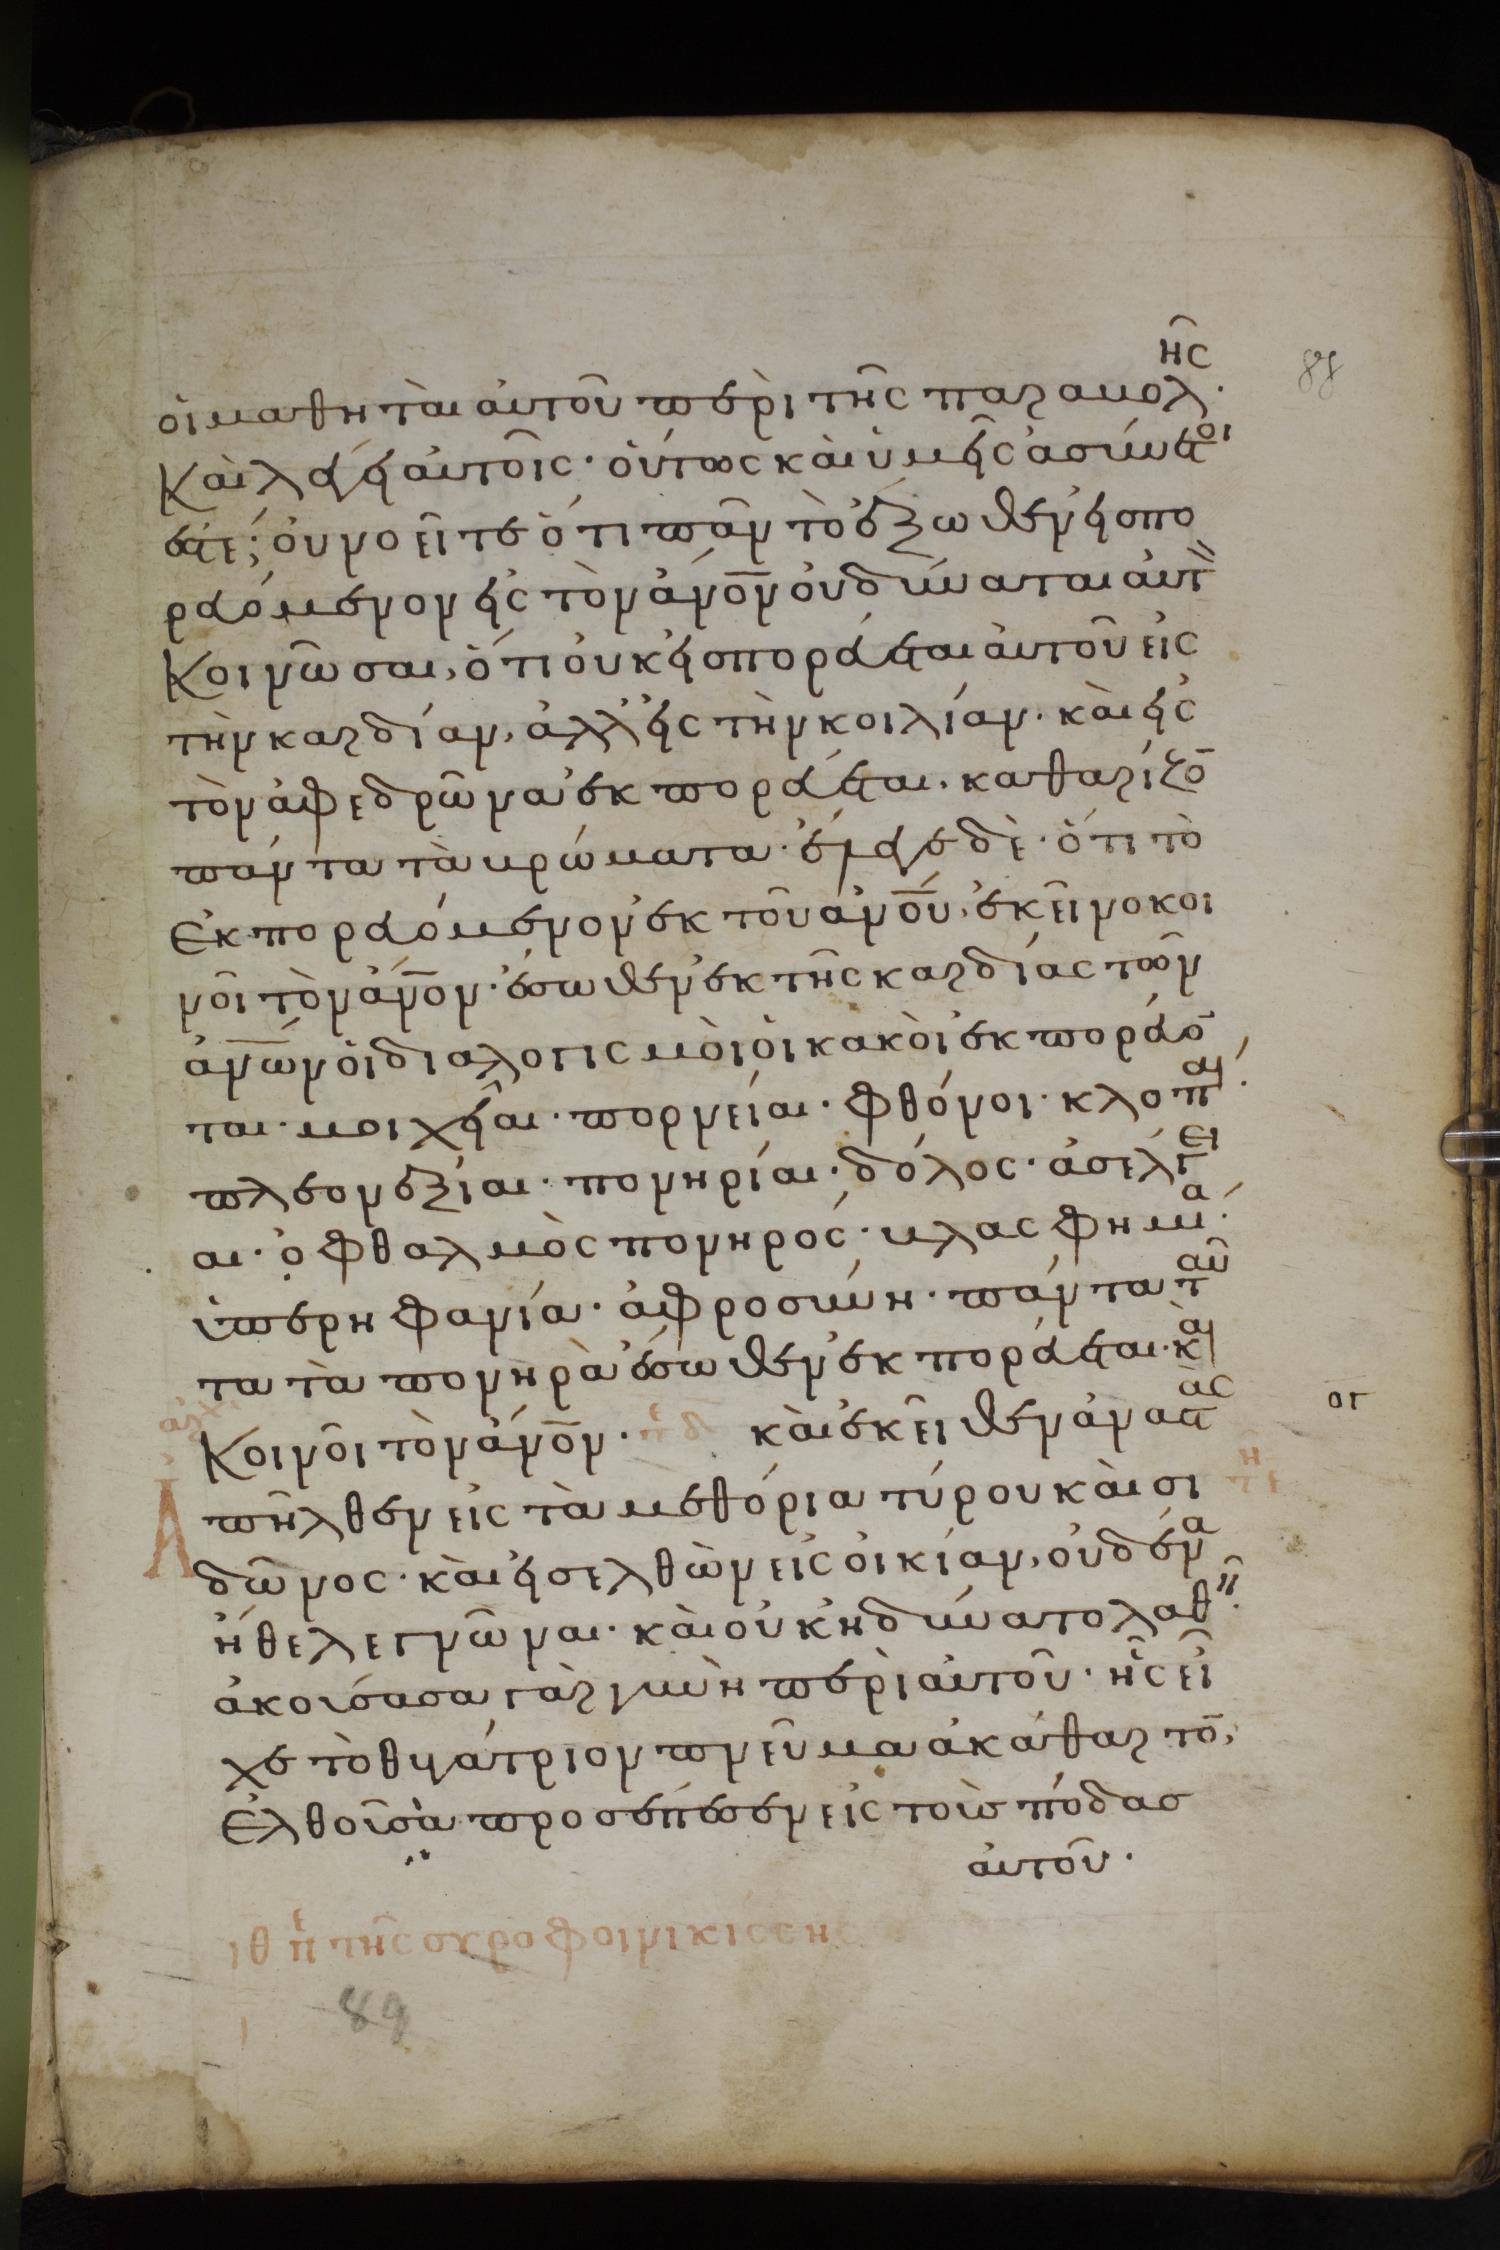 88
οἱ μαθηταὶ αὐτοῦ περὶ τῆς παραβολῆς·
Καὶ λέγει αὐτοῖς· οὕτως καὶ ὑμεῖς ἀσύνετοι
ἐστε; οὐ νοεῖτε ὅτι πᾶν τὸ ἔξωθεν εἰσπο
ρευόμενον εἰς τὸν ἄνο̅ν οὐ δύναται αὐτ
Κοινῶσαι, ὅτι οὐκ εἰσπορεύεται αὐτοῦ εἰς
τὴν καρδίαν, ἀλλ' εἰς τὴν κοιλίαν· καὶ εἰς
τὸν ἀφεδρῶνα ἐκπορεύεται, καθαρίζο̅
πάντα τὰ βρώματα· ἔλεγε δὲ· ὅτι τὸ
Ἐκπορευόμενον ἐκ τοῦ ἀνο̅υ, ἐκεῖνο κοι
νοῖ τὸν ἄνο̅ν· ἔσωθεν ἐκ τῆς καρδίας τῶν
ἀνω̅ν οἱ διαλογισμοὶ οἱ κακοὶ ἐκπορεύο̅
ται· μοιχεῖαι· πορνεῖαι· φθόνοι· κλοπαί·
πλεονεξίαι· πονηρίαι· δόλος· ἀσέλγει
αι· ὀφθαλμὸς πονηρός· βλασφημία·
ὑπερηφανία· ἀφροσύνη· πάντα ταῦ
τα τὰ πονηρὰ ἔσωθεν ἐκπορεύεται· καὶ
Κοινοῖ τὸν ἄνο̅ν· καὶ ἐκεῖθεν ἀναστὰς
ογ
ἀπῆλθεν εἰς τὰ μεθόρια τύρου καὶ σι
δῶνος· καὶ εἰσελθὼν εἰς οἰκίαν, οὐδένα
ἤθελε γνῶναι· καὶ οὐκ ἠδύνατο λαθεῖν·
ἀκούσασα γὰρ γυνὴ περὶ αὐτοῦ· ἧς εἶ
χε τὸ θυγάτριον πνεῦμα ἀκάθαρτο̅,
Ἐλθοῦσα προσέπεσεν εἰς τοὺς πόδας
αὐτοῦ·
ιθ π τῆς συροφοινικίσσης
89